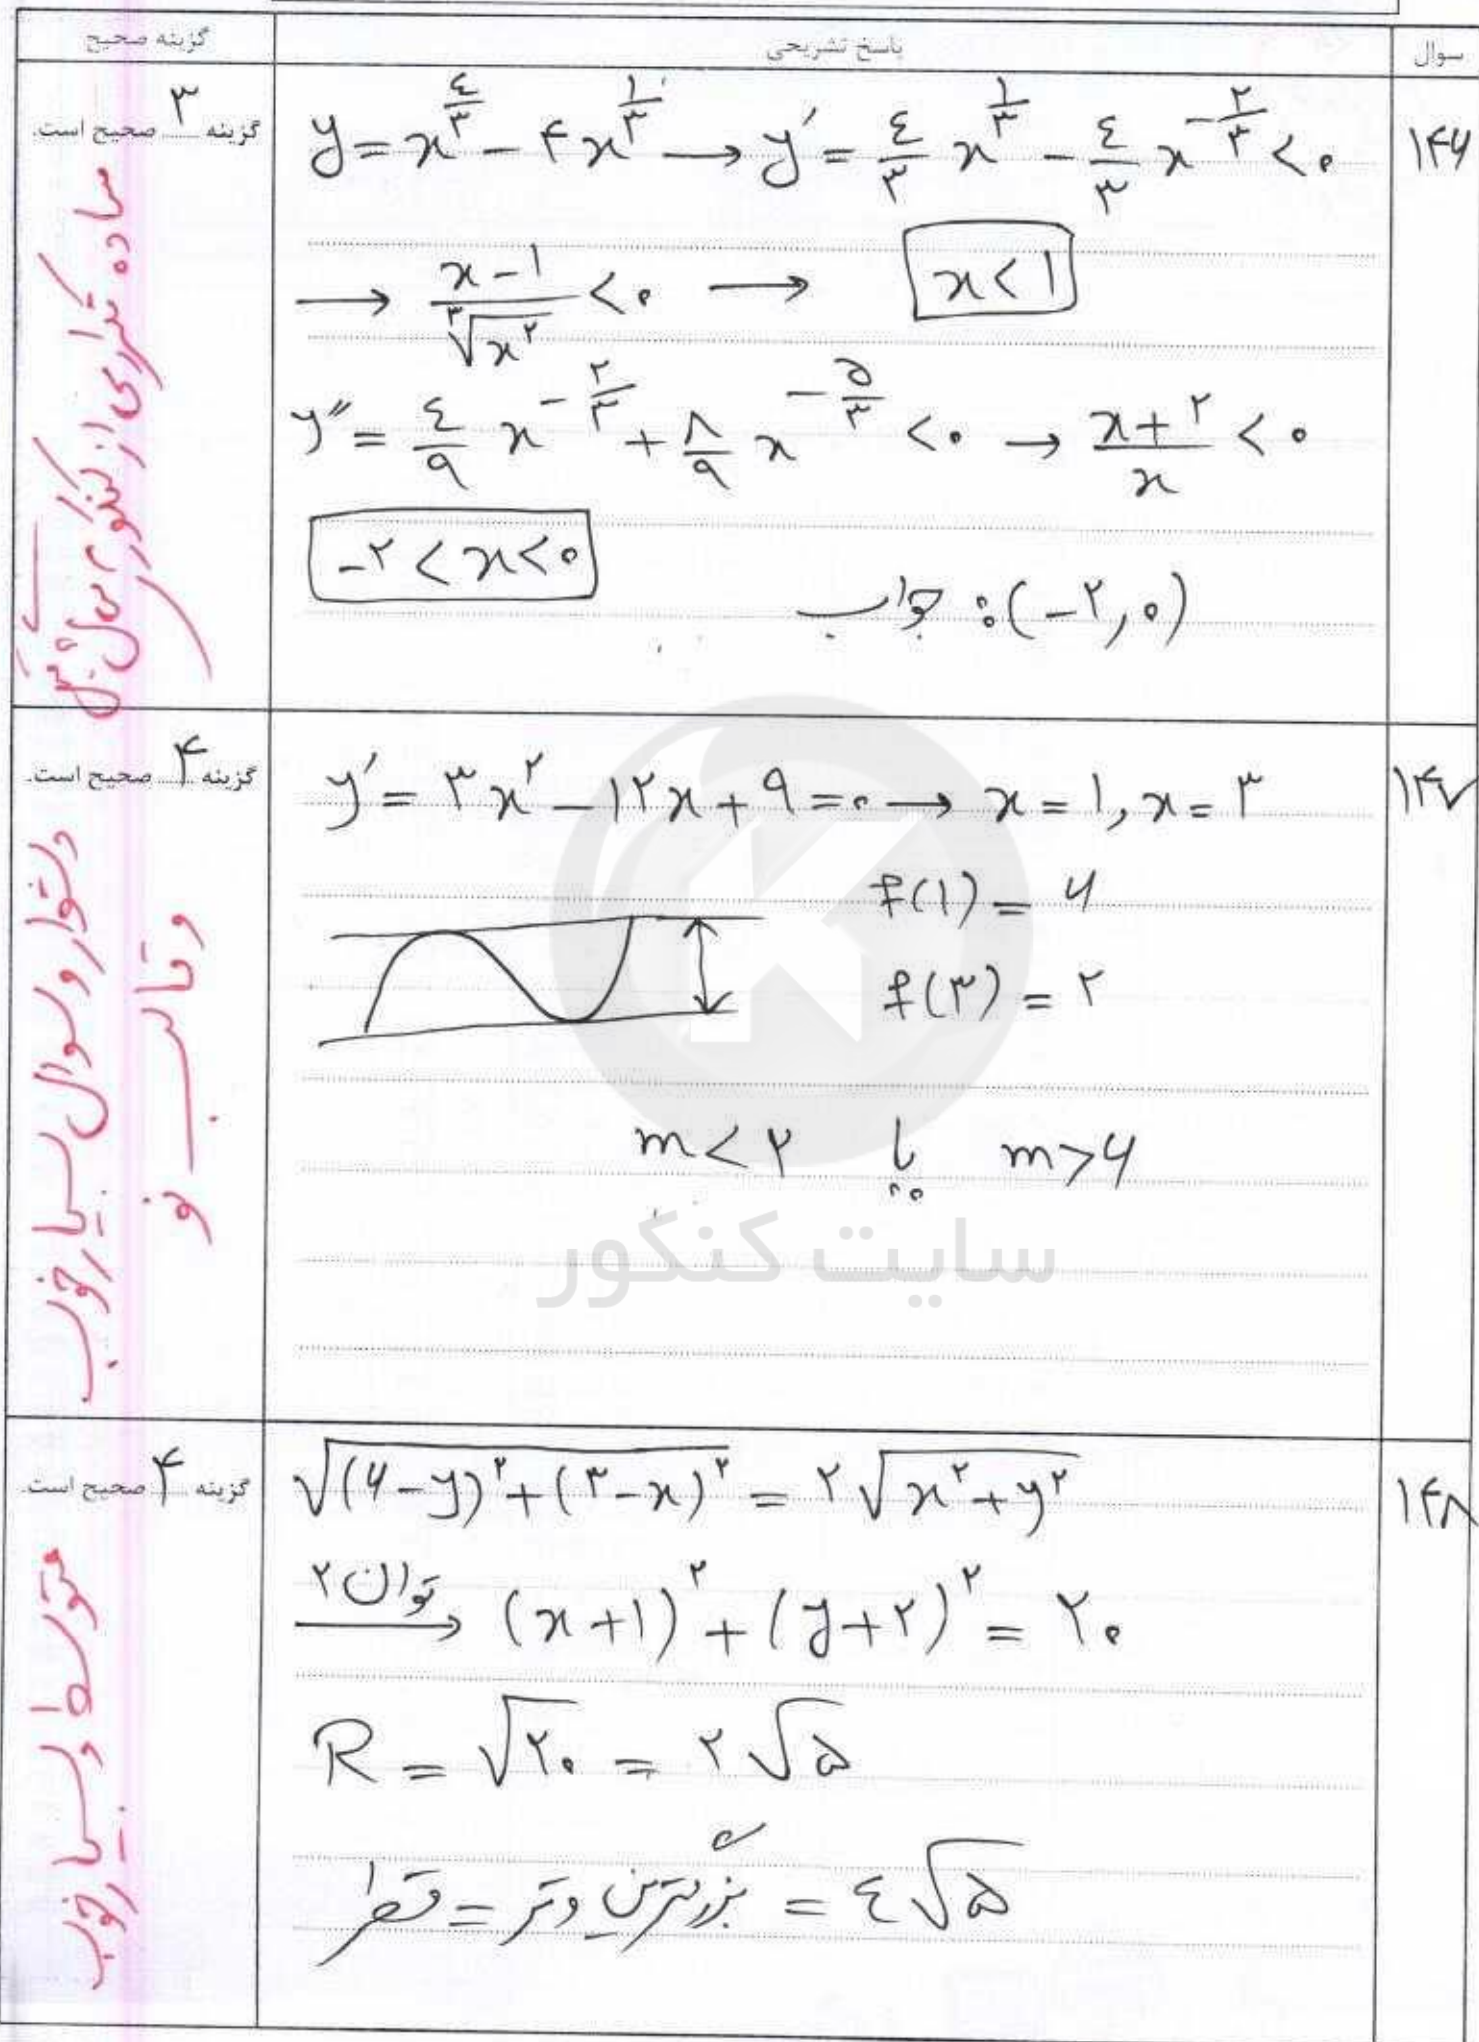 سوال
پاسخ تشریحی
گزینه صحیح
۱۴۶
y = x^{۴/۳} - ۴x^{۱/۳} → y' = ۴/۳ x^{۱/۳} - ۴/۳ x^{-۲/۳} < ۰
→ (x-۱)/∛(x^۲) < ۰ → x < ۱
y'' = ۴/۹ x^{-۲/۳} + ۸/۹ x^{-۵/۳} < ۰ → (x+۲)/x < ۰
-۲ < x < ۰
جواب : (-۲, ۰)
گزینه ۳ صحیح است.
ساده تکراری از کنکور سال
۱۴۷
y' = ۳x^۲ - ۱۲x + ۹ = ۰ → x = ۱, x = ۳
f(۱) = ۶
f(۳) = ۲
m < ۲ یا m > ۶
گزینه ۴ صحیح است.
دشوار و سوال بسیار خوب
و قالب نو
سایت کنکور
۱۴۸
√((۶-y)^۲ + (۳-x)^۲) = ۲√(x^۲ + y^۲)
توان ۲ → (x+۱)^۲ + (y+۲)^۲ = ۲۰
R = √۲۰ = ۲√۵
قطر = بزرگترین وتر = ۴√۵
گزینه ۴ صحیح است.
متوسط و بسیار خوب